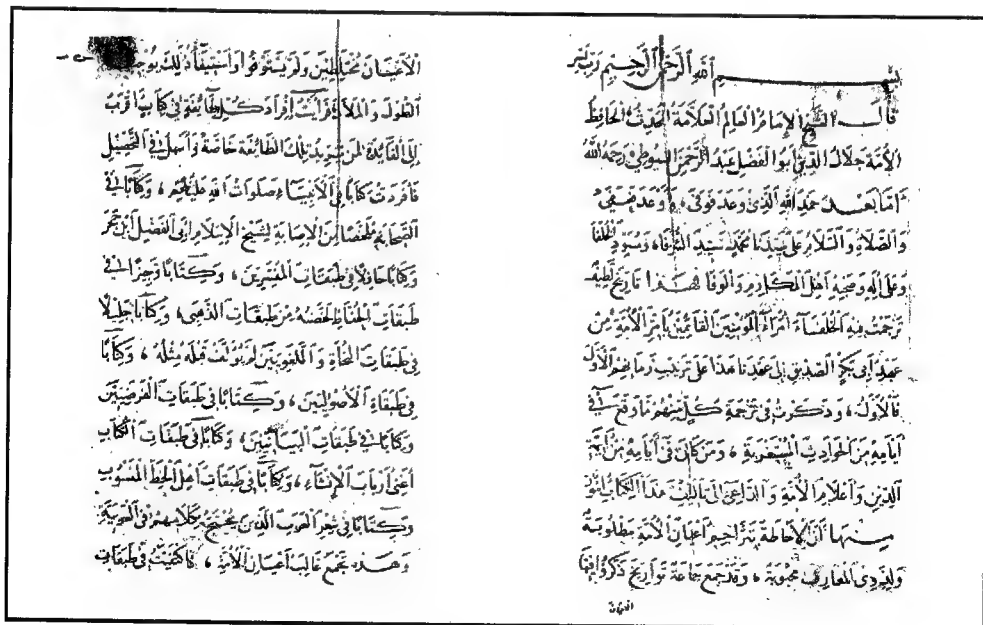 بسم الله الرحمن الرحيم رب يسر
قال الشيخ الإمام العالم العلامة المحدث الحافظ
الأمة جلال الدين أبو الفضل عبد الرحمن السيوطي رحمه الله
أما بعد حمد الله الذي وعد فوفى ، وأوعد فعفى
والصلاة والسلام على سيدنا محمد سيد الشرفا، ومسود الخلفا
وعلى آله وصحبه أهل المكارم والوفا فهذا تاريخ لطيف
ترجمت فيه الخلفاء أمراء المؤمنين القائمين بأمر الأمة من
عهد أبي بكر الصديق إلى عهدنا هذا على ترتيب زمانهم الأول
فالأول ، وذكرت في ترجمة كل منهم ما وقع في
أيامه من الحوادث المستغربة ، ومن كان في أيامه من أئمة
الدين وأعلام الأمة والداعي إلى تأليف هذا الكتاب أمور
منها أن الإحاطة بتراجم أعيان الأمة مطلوبة
ولذوي المعارف محبوبة ، وقد جمع جماعة تواريخ ذكروا فيها
الأعيان
الأعيان مختلطين ولم يستوفوا واستيفاء ذلك يوجب
الطول والملالة فرأيت إفراد كل طائفة في كتاب أقرب
إلى الفائدة لمن يريد تلك الطائفة خاصة وأسهل في التحصيل
فأفردت كتابا في الأنبياء صلوات الله عليهم ، وكتابا في
الصحابة ملخصا من الإصابة لشيخ الإسلام أبي الفضل ابن حجر
وكتابا حافلا في طبقات المفسرين ، وكتابا وجيزا في
طبقات الحفاظ لخصته من طبقات الذهبي، وكتابا جليلا
في طبقات النحاة واللغويين لم يؤلف قبله مثله ، وكتابا
في طبقات الأصوليين ، وكتابا في طبقات الفرضيين
وكتابا في طبقات البيانيين، وكتابا في طبقات الكتاب
أعني أرباب الإنشاء ، وكتابا في طبقات أهل الخط المنسوب
وكتابا في شعر العرب الذين يحتج بكلامهم في العربية
وهذه تجمع غالب أعيان الأمة ، فاكتفيت في طبقات